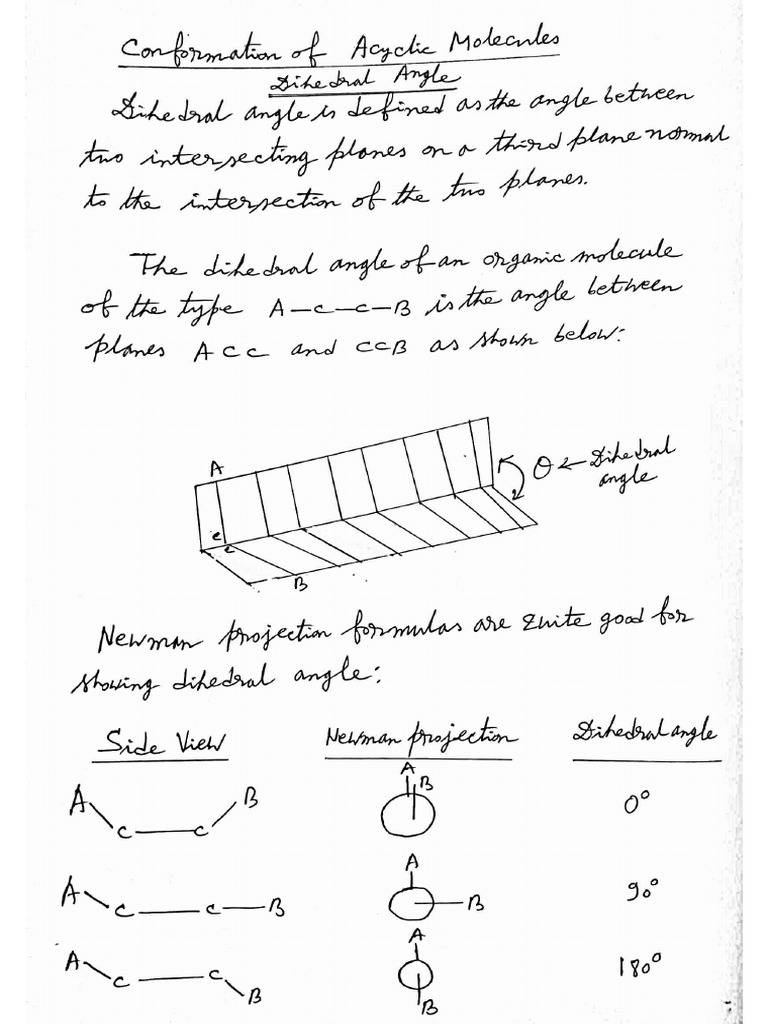 Conformation of Acyclic Molecules
Dihedral Angle
Dihedral angle is defined as the angle between
two intersecting planes on a third plane normal
to the intersection of the two planes.
The dihedral angle of an organic molecule
of the type A-C-C-B is the angle between
planes ACC and CCB as shown below:
A
θ ← Dihedral
angle
C
C
B
Newman projection formulas are quite good for
showing dihedral angle:
Side View Newman projection Dihedral angle
A C C B A B 0°
A C C B A B 90°
A C C B A B 180°